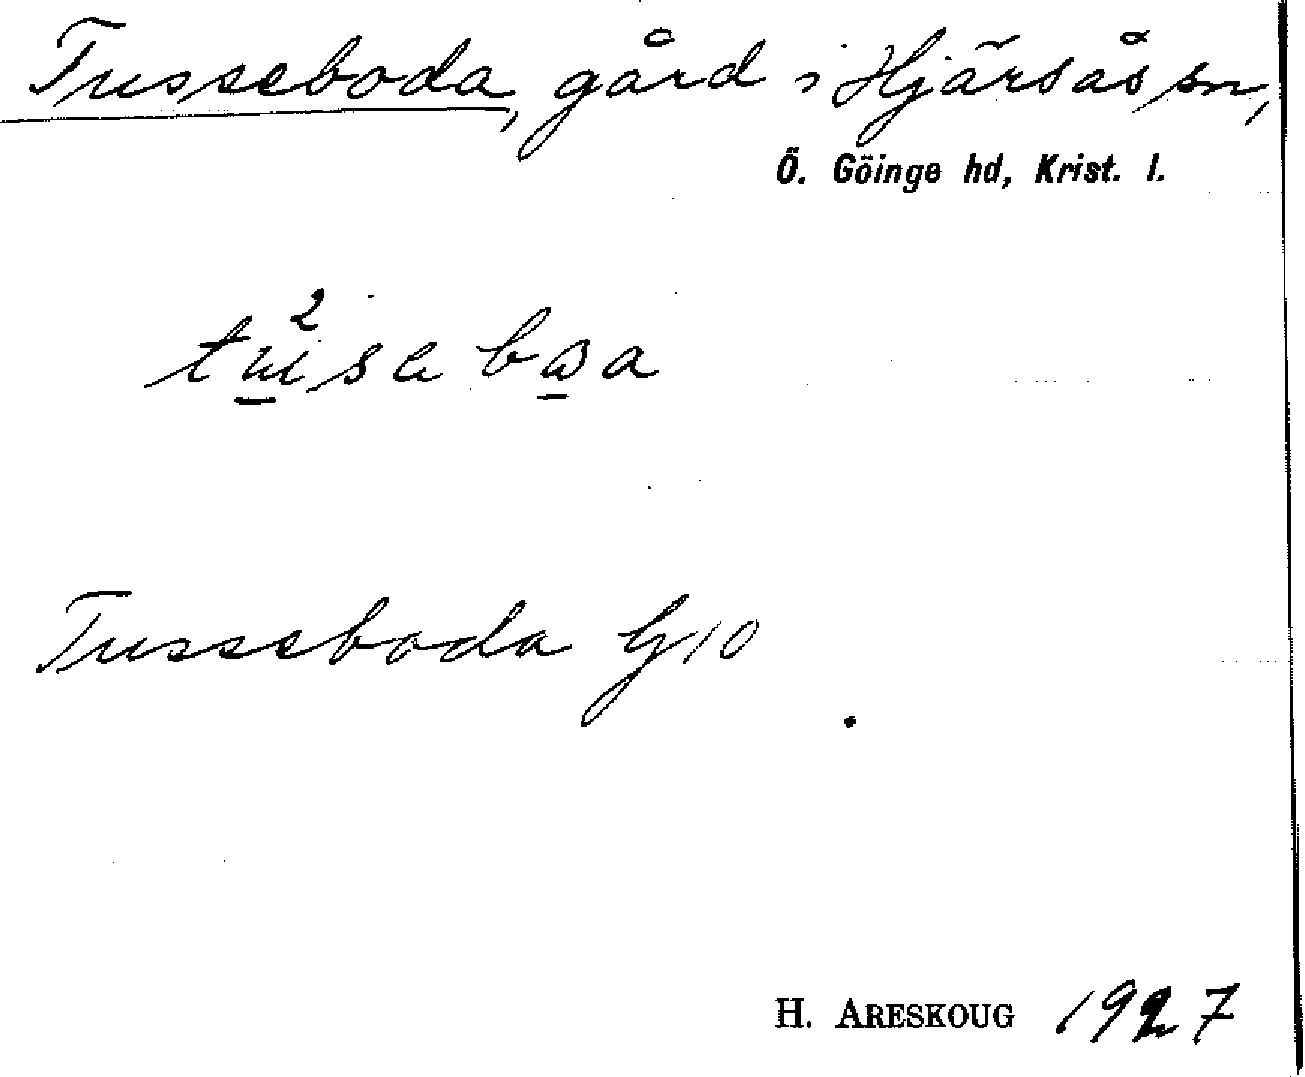 Tusseboda, gård i Hjärsås sn,
Ö. Göinge hd, Krist. l.
Tusseboda G 10
H. ARESKOUG 1927